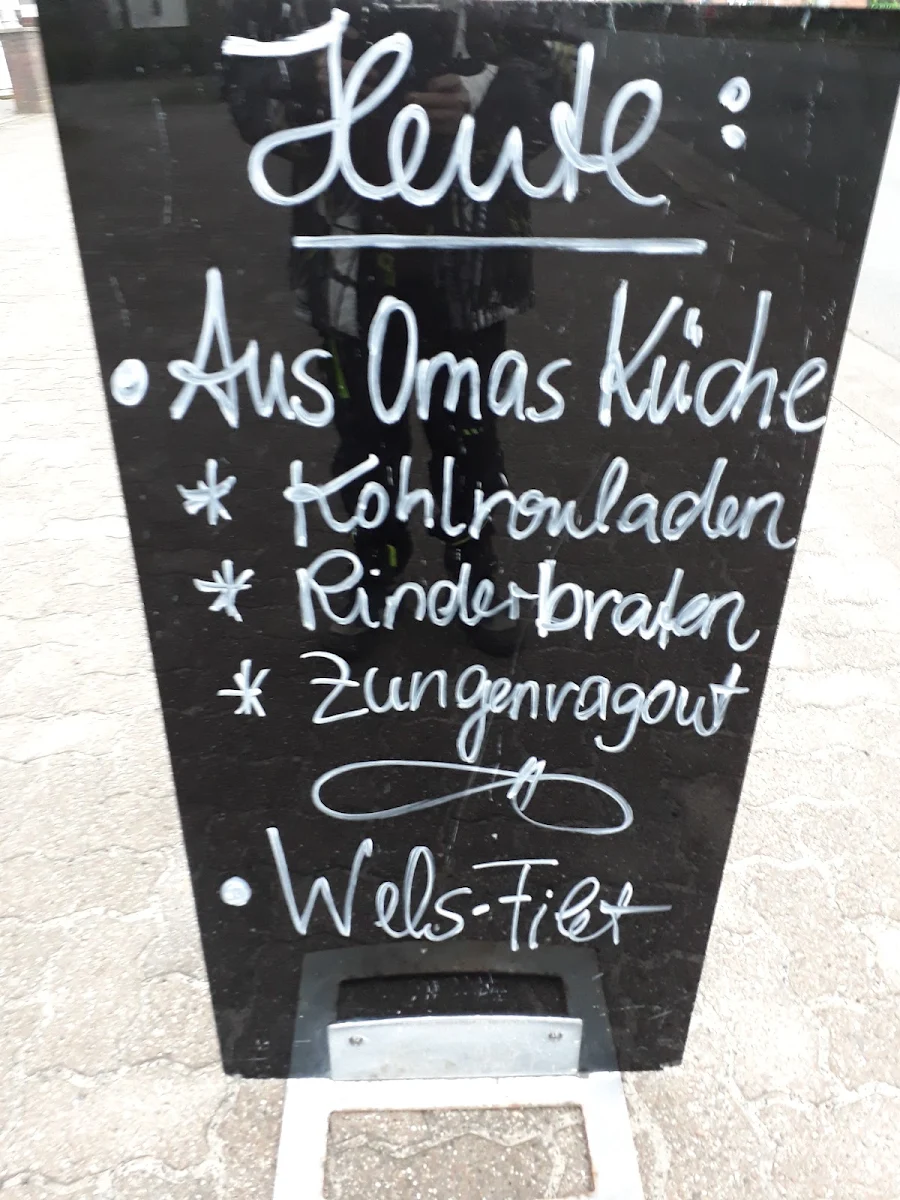 Heute:
• Aus Omas Küche
* Kohlrouladen
* Rinderbraten
* Zungenragout
• Wels-Filet